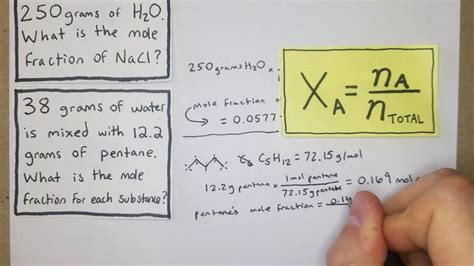 250 grams of H₂O.
What is the mole
fraction of NaCl?
38 grams of water
is mixed with 12.2
grams of pentane.
What is the mole
fraction for each substance?
250 grams H₂O ×
mole fraction o
= 0.0577
X_A = n_A / n_TOTAL
C₅H₁₂ = 72.15 g/mol
12.2g pentane × 1 mol pentane / 72.15 g pentane = 0.169 mol
pentane's mole fraction = 0.16